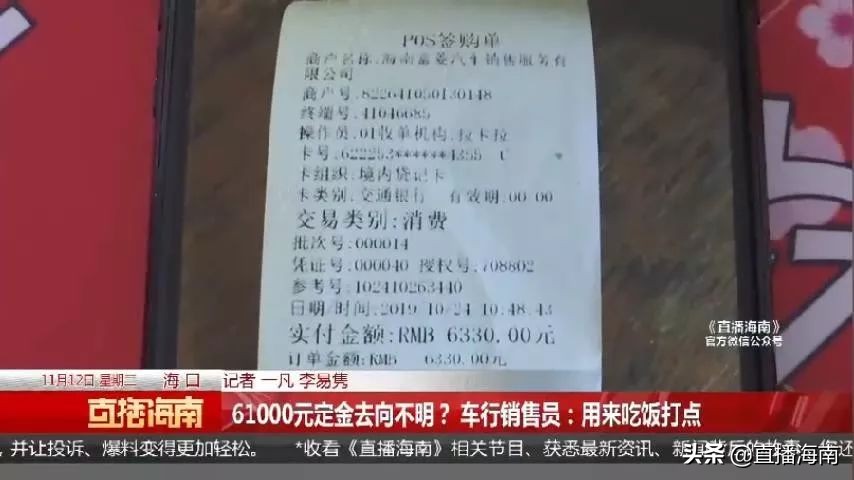 POS签购单
商户名称:海南富菱汽车销售服务有
限公司
商户号:822641050130148
终端号:41046685
操作员:01收单机构:拉卡拉
卡号:622253******4355 C
卡组织:境内贷记卡
卡类别:交通银行 有效期:00 00
交易类别:消费
批次号:000014
凭证号:000040 授权号:708802
参考号:102410263440
日期/时间:2019/10/24 10:48:43
实付金额:RMB 6330.00元
订单金额:RMB 6330.00元
《直播海南》
官方微信公众号
11月12日 星期二 海口 记者 一凡 李易隽
直播海南
61000元定金去向不明? 车行销售员:用来吃饭打点
,并让投诉、爆料变得更加轻松。 *收看《直播海南》相关节目、获悉最新资讯、新闻背后的故事,您还
头条 @直播海南